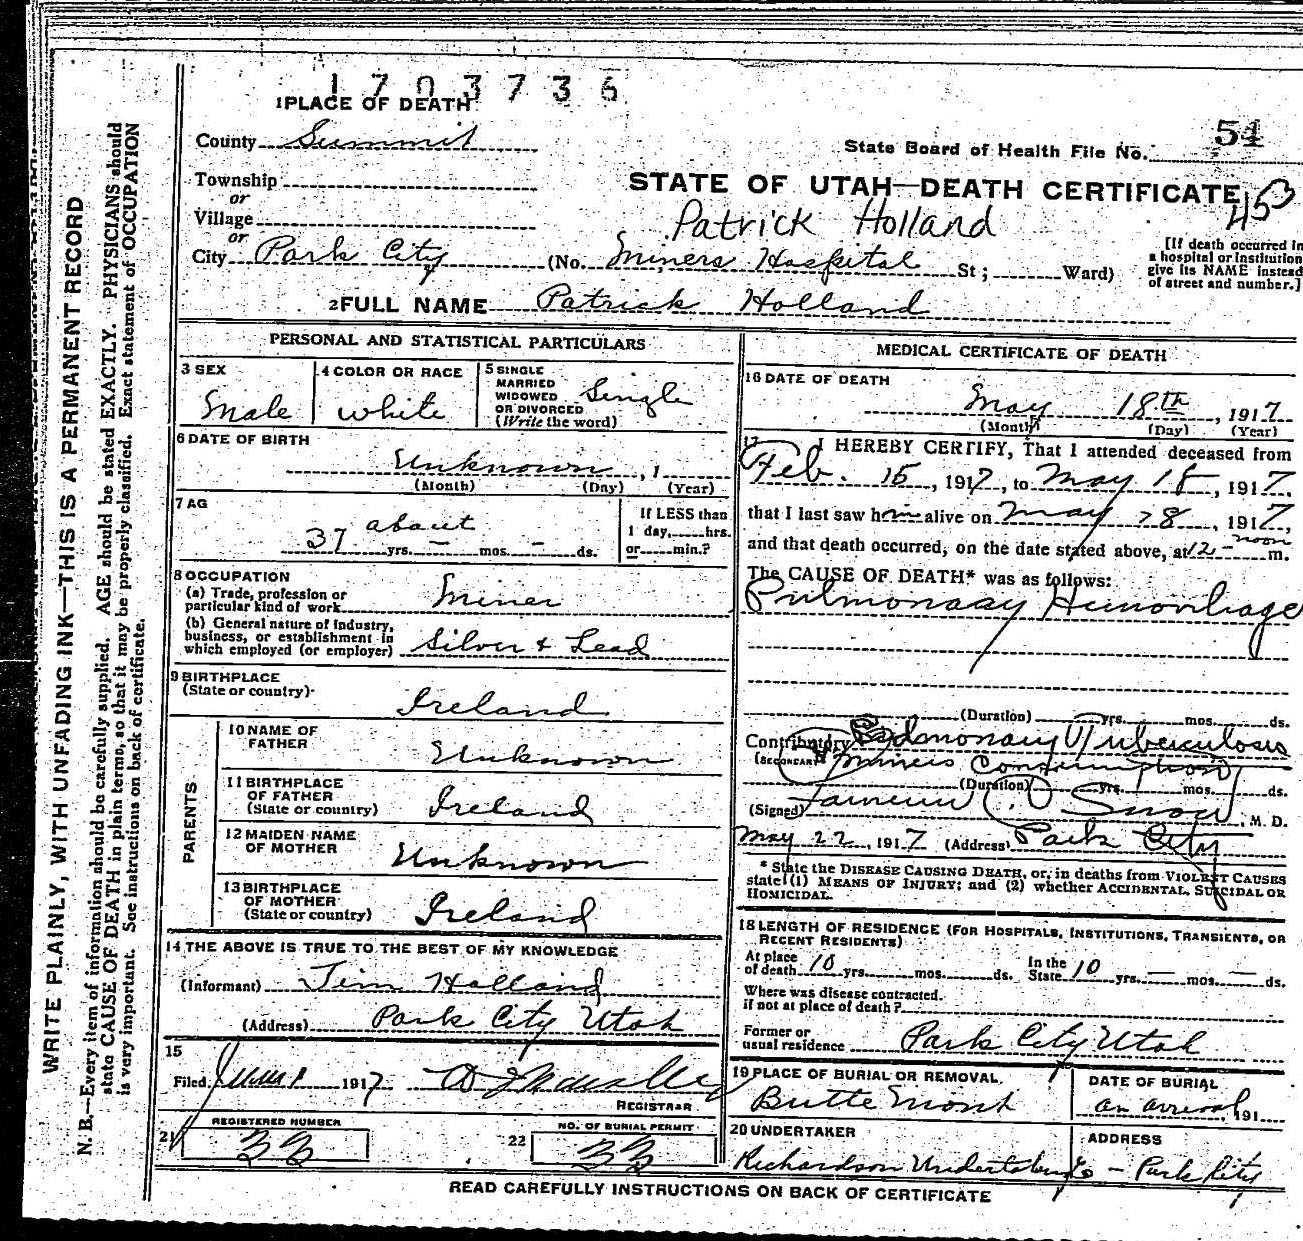 1703736
1 PLACE OF DEATH
County Summit
State Board of Health File No. 54
Township
or
STATE OF UTAH—DEATH CERTIFICATE
Village
or
Patrick Holland
City Park City (No. Miners Hospital St; Ward)
[If death occurred in
a hospital or institution
give its NAME instead
of street and number.]
2 FULL NAME Patrick Holland
PERSONAL AND STATISTICAL PARTICULARS
3 SEX
Male
4 COLOR OR RACE
White
5 SINGLE
MARRIED
WIDOWED
OR DIVORCED
(Write the word)
Single
6 DATE OF BIRTH
Unknown, 1
(Month) (Day) (Year)
7 AG
about
37 yrs. — mos. — ds.
If LESS than
1 day, hrs.
or min.?
8 OCCUPATION
(a) Trade, profession or
particular kind of work Miner
(b) General nature of Industry,
business, or establishment in
which employed (or employer) Silver & Lead
9 BIRTHPLACE
(State or country)
Ireland
PARENTS
10 NAME OF
FATHER
Unknown
11 BIRTHPLACE
OF FATHER
(State or country)
Ireland
12 MAIDEN NAME
OF MOTHER
Unknown
13 BIRTHPLACE
OF MOTHER
(State or country)
Ireland
14 THE ABOVE IS TRUE TO THE BEST OF MY KNOWLEDGE
(Informant) Jim Holland
(Address) Park City Utah
15
Filed 1917
REGISTRAR
REGISTERED NUMBER
21 33
NO. OF BURIAL PERMIT
22 33
MEDICAL CERTIFICATE OF DEATH
16 DATE OF DEATH
May 18th, 1917
(Month) (Day) (Year)
17 I HEREBY CERTIFY, That I attended deceased from
Feb. 15, 1917, to May 18, 1917,
that I last saw him alive on May 18, 1917,
and that death occurred, on the date stated above, at 12 - noon m.
The CAUSE OF DEATH* was as follows:
Pulmonary Hemorrhage
(Duration) yrs. mos. ds.
Contributory Pulmonary Tuberculosis
(SECONDARY) Miners Consumption
(Duration) yrs. mos. ds.
(Signed) Snow, M. D.
May 22, 1917 (Address) Park City
* State the DISEASE CAUSING DEATH, or, in deaths from VIOLENT CAUSES
state (1) MEANS OF INJURY; and (2) whether ACCIDENTAL, SUICIDAL OR
HOMICIDAL.
18 LENGTH OF RESIDENCE (FOR HOSPITALS, INSTITUTIONS, TRANSIENTS, OR
RECENT RESIDENTS)
At place
of death 10 yrs. mos. ds.
In the
State 10 yrs. — mos. — ds.
Where was disease contracted.
if not at place of death?
Former or
usual residence Park City Utah
19 PLACE OF BURIAL OR REMOVAL
Butte Mont
DATE OF BURIAL
on arrival 191
20 UNDERTAKER
Richardson Undertaking Co
ADDRESS
- Park City
READ CAREFULLY INSTRUCTIONS ON BACK OF CERTIFICATE
WRITE PLAINLY, WITH UNFADING INK—THIS IS A PERMANENT RECORD
N. B.—Every item of information should be carefully supplied. AGE should be stated EXACTLY. PHYSICIANS should
state CAUSE OF DEATH in plain terms, so that it may be properly classified. Exact statement of OCCUPATION
is very important. See instructions on back of certificate.